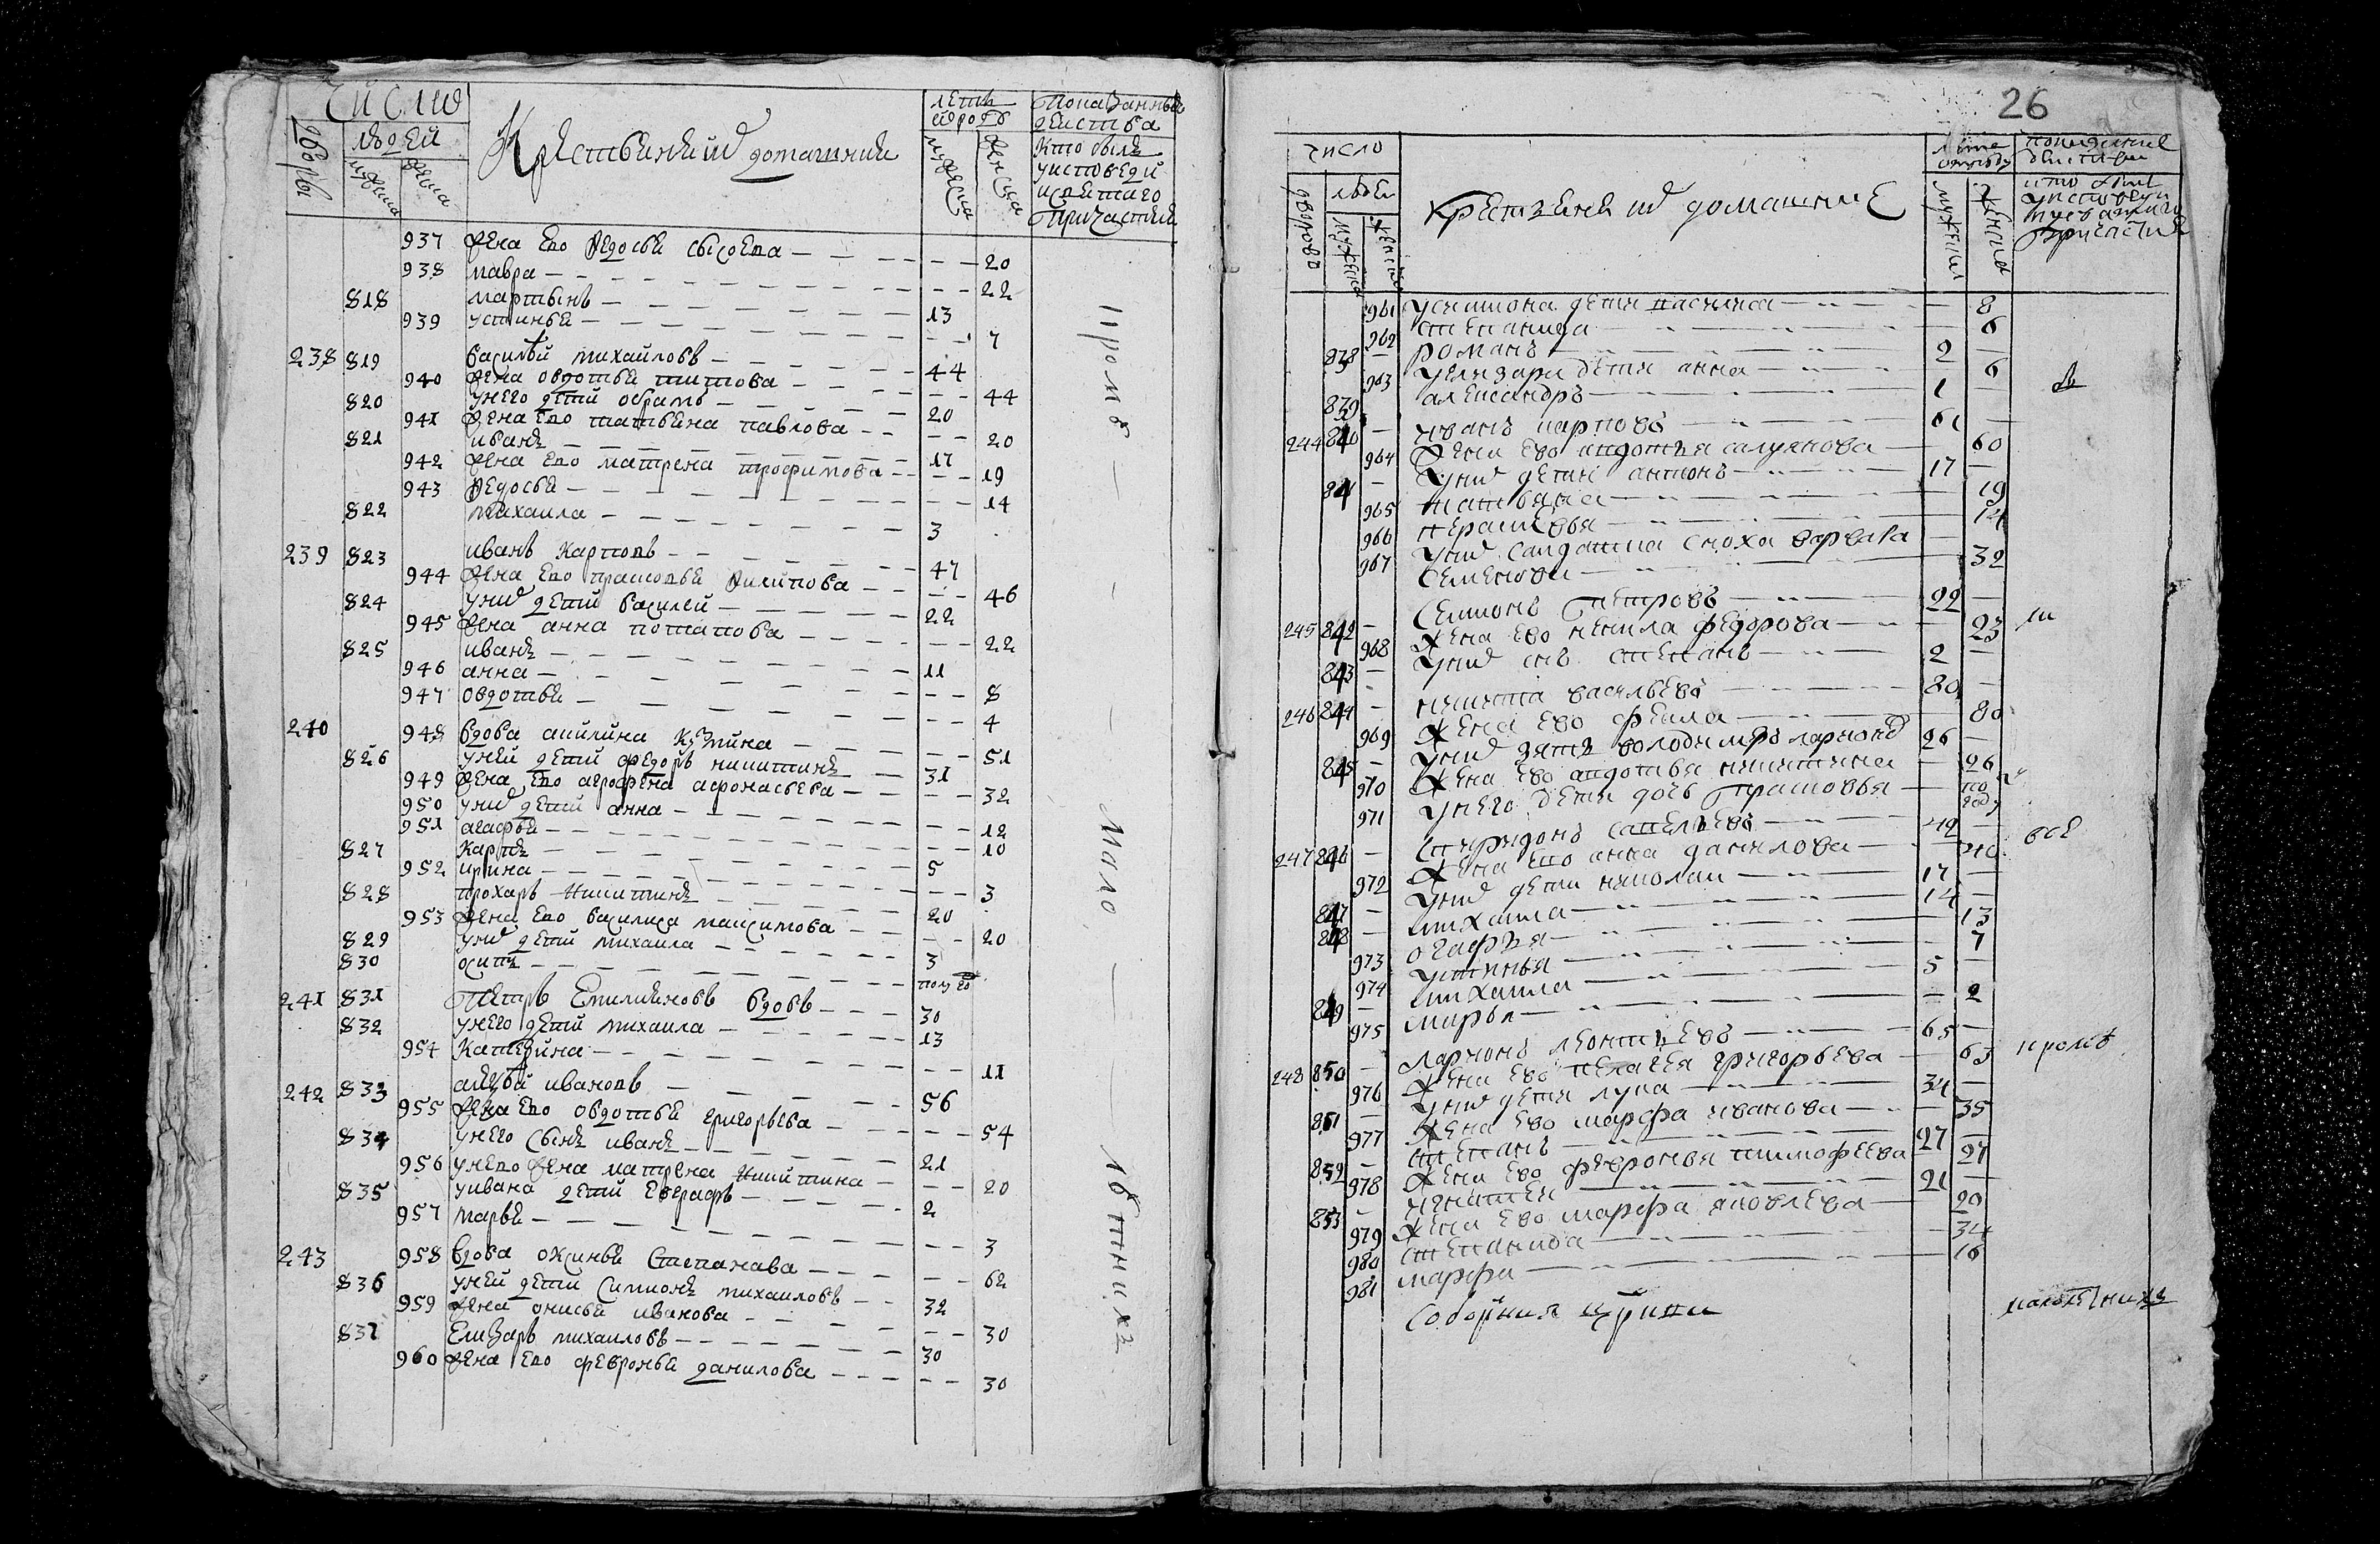 Число
дворы
людей
мужеска
женска
Крестьяня и домашния
летъ
от роду
мужеска
женска
Показанныя
действа
Кто были
у исповеди
и святаго
Причастия
937 жена ево Федосья Сысоева — 20
938 мавра — 22
818 мартынъ — 13
939 устинья — 7
238 819 василей михайловъ — 44
940 жена овдотья титова — 44
820 у него дети обрамъ — 20
941 жена ево татьяна павлова — 20
821 иванъ — 17
942 жена ево матрена трофимова — 19
943 Федосья — 14
822 михаила — 3
239 823 иванъ Карповъ — 47
944 жена ево прасковья Филипова — 46
824 у них дети василей — 22
945 жена анна потапова — 22
825 иванъ — 11
946 анна — 8
947 овдотья — 4
240 948 вдова акилина Кузмина — 51
826 у ней дети федоръ никитинъ — 31
949 жена ево аграфена афонасьева — 32
950 у них дети анна — 12
951 агафья — 10
827 Карпъ — 5
952 ирина — 3
828 прохаръ Никитинъ — 20
953 жена ево василиса максимова — 20
829 у них дети михаила — 3
830 осипъ — полу го
241 831 Петръ Емилияновъ вдовъ — 30
832 у него дети михаила — 13
954 Катерина — 11
242 833 ивановъ — 56
955 жена ево овдотья григорьева — 54
834 у него сынъ иванъ — 21
956 у нево жена матрена Никитина — 20
835 у ивана дети Евграфъ — 2
957 марья — 3
243 958 вдова оксинья Степанава — 62
836 у ней дети Симионъ михаиловъ — 32
959 жена онисья иванова — 30
837 Елизаръ михаиловъ — 30
960 жена ево февронья данилова — 30
кроме — мало — — летнихъ
26
число
дворовъ
людей
мужеска
женска
крестьяне и домашние
лета
от роду
мужеска
женска
показание
действи
кто был
у исповеди
и святаго
причастия
961 у симиона дети — 8
962 степанида — 6
838 романъ — 2
963 у елизара дети анна — 6
839 александръ — 1
244 840 иванъ карповъ — 61
964 жена ево авдотья — 60
841 у них дети антонъ — 17
965 татьяна — 19
966 парасковья — 14
967 у них салдатка сноха варвара
семенова — 32
245 842 Семионъ Петровъ — 22
968 жена ево ненила федорова — 23
843 у них снъ степанъ — 2
246 844 никита васильевъ — 80
969 жена ево фекла — 80
845 у них зять володимеръ ларионов — 26
970 жена ево авдотья никитина — 26
971 у него дети дочь Прасковья — по году
247 846 Спиридонъ савельевъ — 42
972 жена ево анна данилова — 40
847 у них дети николаи — 17
848 михаила — 14
973 огафья — 13
974 устинья — 7
849 михаила — 5
975 марья — 2
248 850 ларионъ леонтьевъ — 65
976 жена ево пелагея григорьева — 63
851 у них дети лука — 34
977 жена ево марфа иванова — 35
852 степанъ — 27
978 жена ево февронья тимофеева — 27
853 игнатеи — 21
979 жена ево марфа яковлева — 20
980 степанида — 34
981 марфа — 16
Соборныя цркви
все
кроме
малолетнихъ